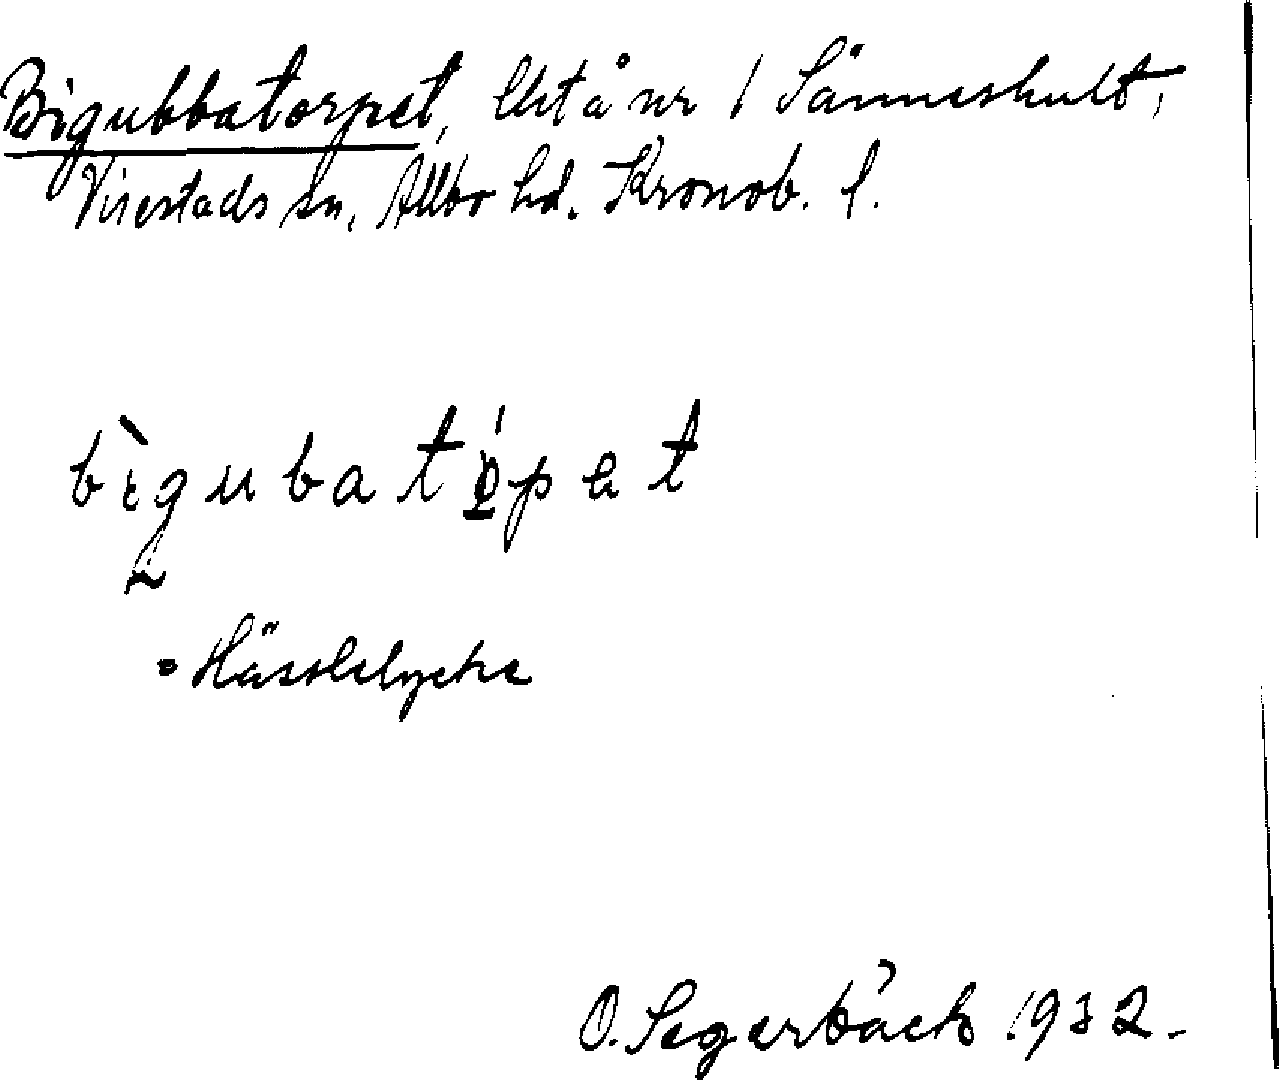 Bigubbatorpet, Urtå nr 1 Sänneshult,
Virestads sn, Allbo hd. Kronob. l.
bìgubatópet
= Hässlelycke
O. Segerbäck 1932.